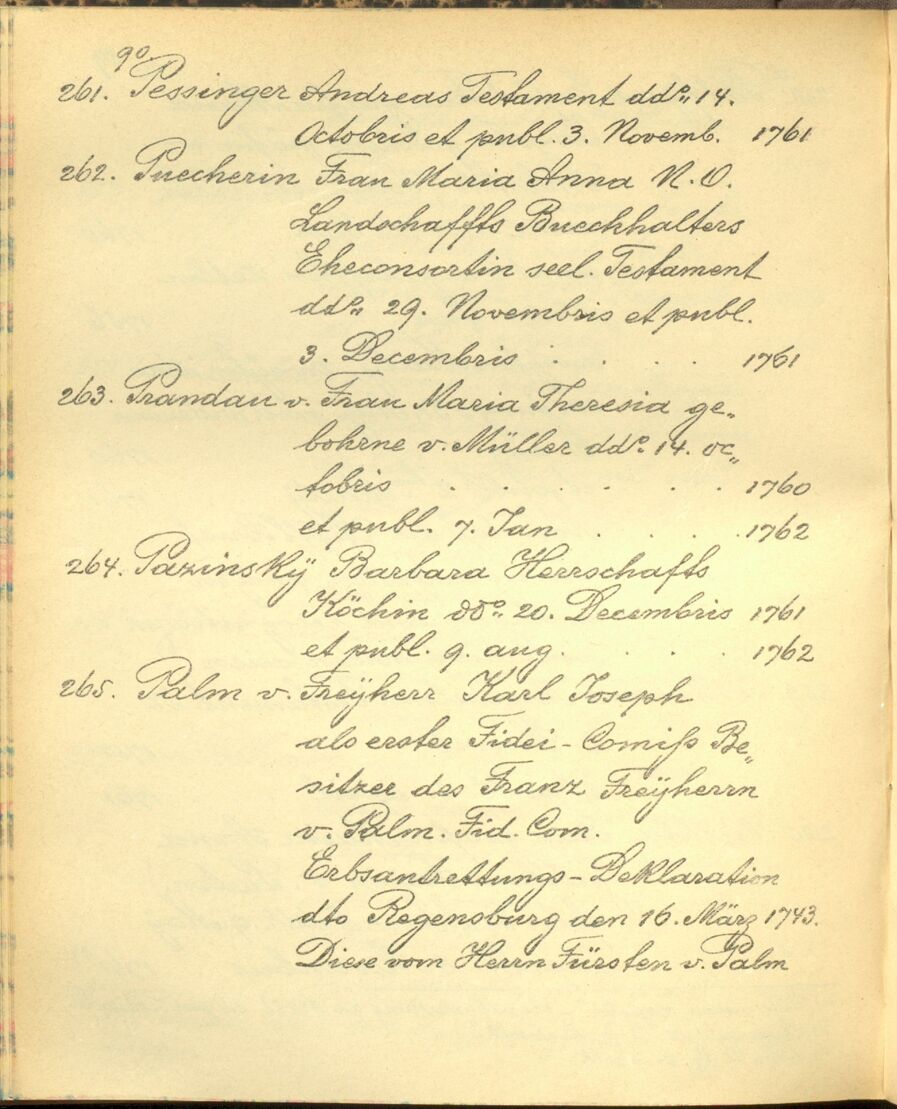 90
261. Pessinger Andreas Testament ddº„ 14.
Octobris et publ. 3. Novemb. 1761
262. Puecherin Frau Maria Anna N. O.
Landschaffts Buechhalters
Eheconsortin seel. Testament
ddº„ 29. Novembris et publ.
3. Decembris . . . . 1761
263. Prandau v. Frau Maria Theresia ge„
bohrne v. Müller ddº. 14. oc„
tobris . . . . . . 1760
et publ. 7. Jan . . . . 1762
264. Pazinskÿ Barbara Herrschafts
Köchin ddº„ 20. Decembris 1761
et publ. 9. aug. . . . 1762
265. Palm v. Freÿherr Karl Joseph
als erster Fidei-Comiſs Be„
sitzer des Franz Freÿherrn
v. Palm. Fid. Com.
Erbsantrettungs-Deklaration
dto Regensburg den 16. März 1743.
Diese vom Herrn Fürsten v. Palm